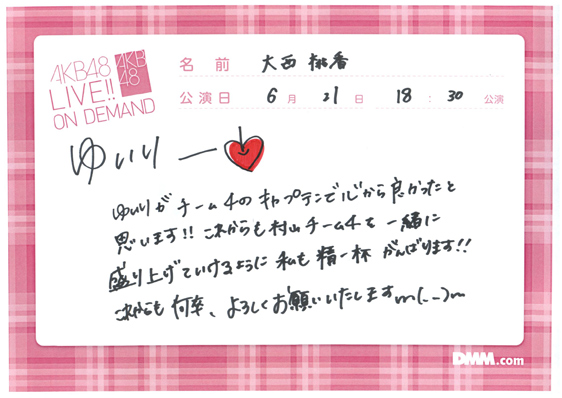 AKB48
LIVE!!
ON DEMAND
AKB
48
名前 大西 桃香
公演日 6月 21日 18:30 公演
ゆいりー
ゆいりがチーム4のキャプテンで心から良かったと
思います!! これからも村山チーム4を一緒に
盛り上げていけるように私も精一杯がんばります!!
これからも何卒、よろしくお願いいたしますm(._.)m
DMM.com